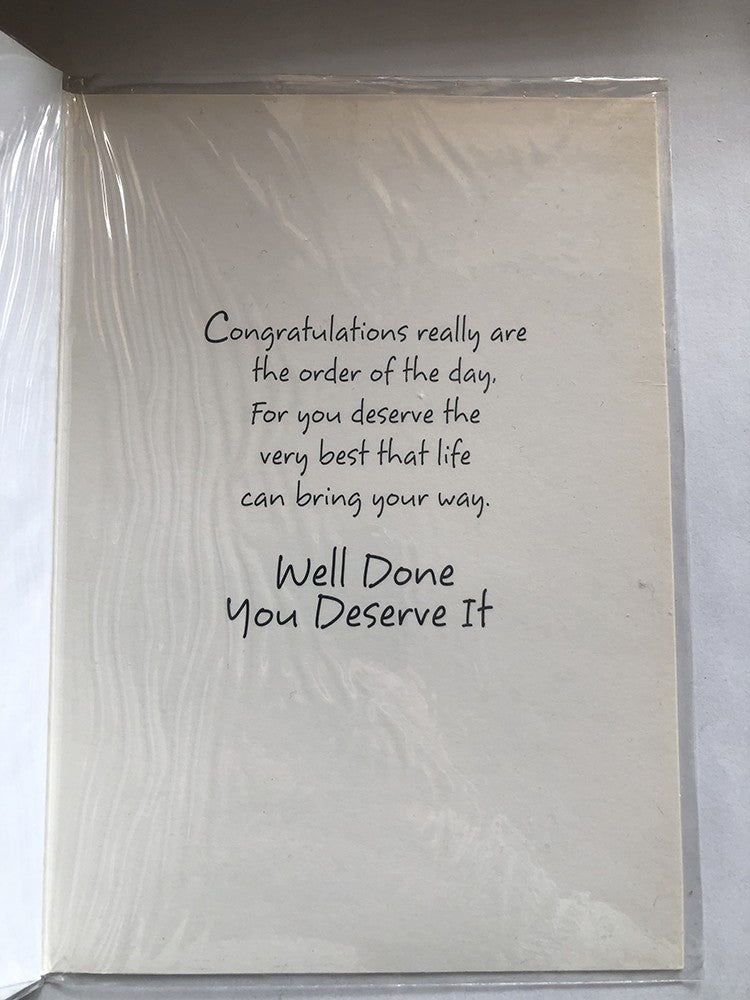 Congratulations really are
the order of the day,
For you deserve the
very best that life
can bring your way.
Well Done
You Deserve It